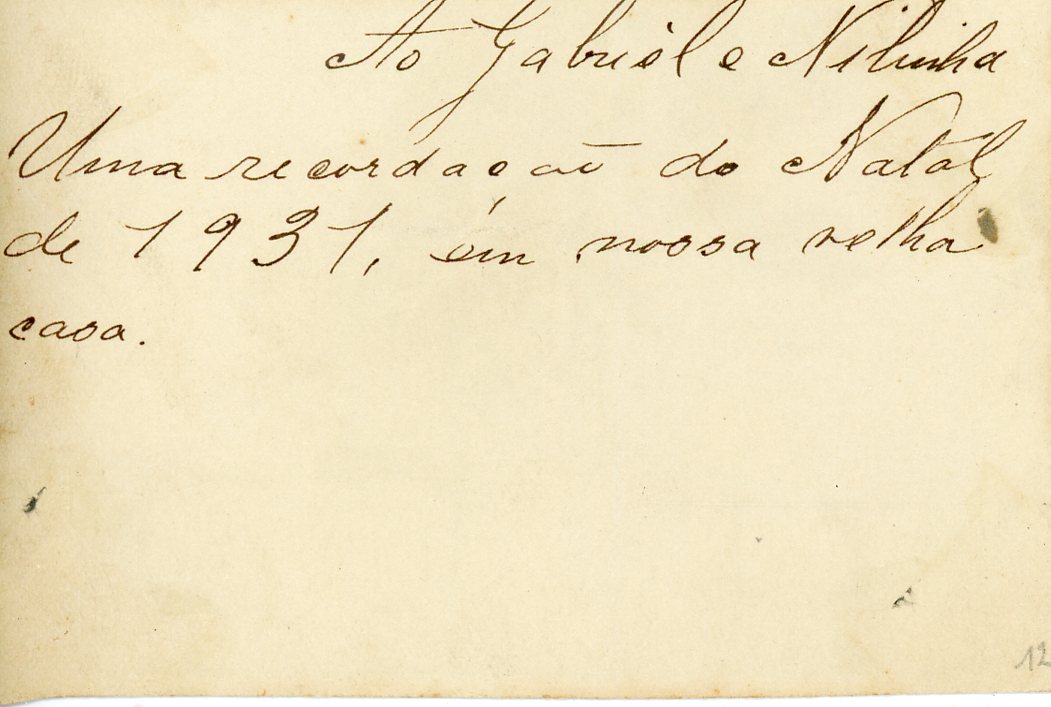 Ao Gabriel e Nilinha
Uma recordação do Natal
de 1931, em nossa velha
casa.
12